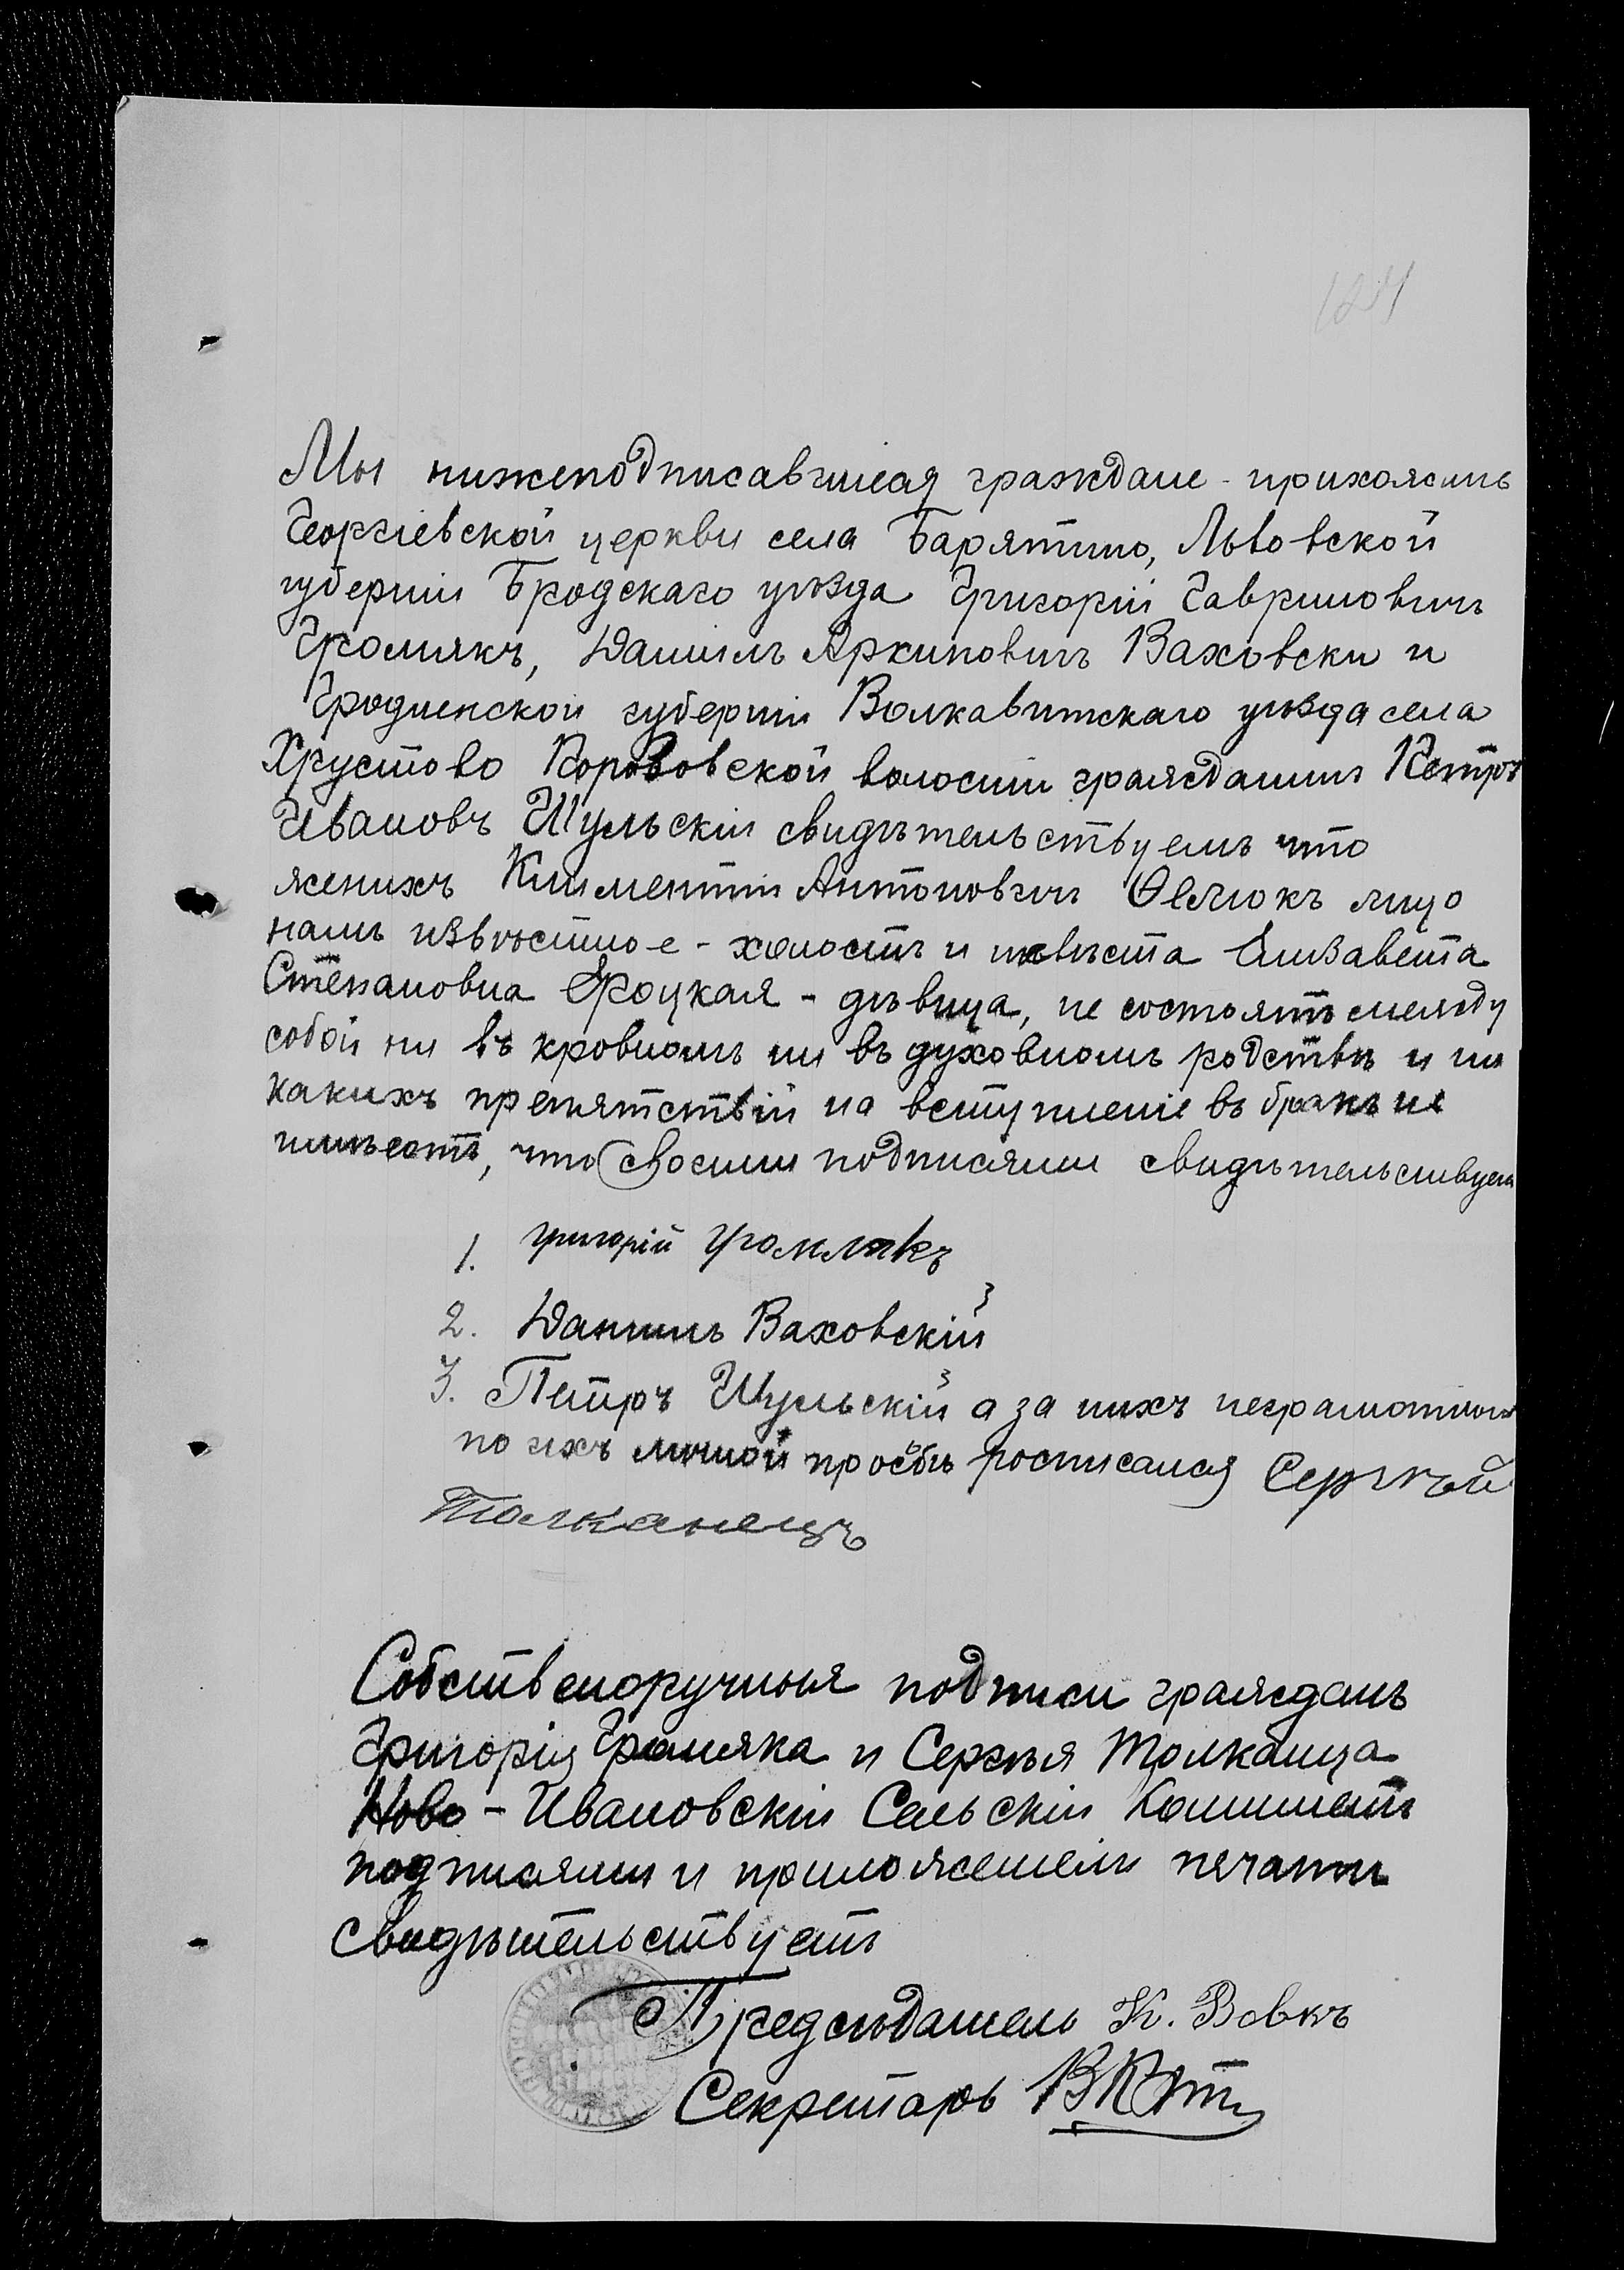 124
Мы нижеподписавшіеся граждане - прихожанъ
Георгіевской церкви села Барятино, Львовской
губерніи Бродскаго уѣзда Григорій Гавриловичъ
Громякъ, Даніилъ Архиповичъ Ваховски и
Гродненской губерніи Волкавитскаго уѣзда села
Хрустово Порозовской волости гражданинъ Петръ
Ивановъ Шульскій свидѣтельствуемъ что
женихъ Климентій Антоновичъ Ѳемюкъ лицо
намъ извѣстное - холостъ и невѣста Елизавета
Степановна Яроцкая - дѣвица, не состоятъ между
собой ни въ кровномъ ни въ духовномъ родствѣ и ни
какихъ препятствій на вступленіе въ бракъ не
имѣютъ, что своими подписями свидѣтельствуемъ
1. Григорій Громлякъ
2. Даніилъ Ваховскій
3. Петръ Шульскій а за нихъ неграмотныхъ
по ихъ личной просьбѣ росписался Сергѣй
Толканецъ
Собственоручныя подписи гражданъ
Григорія Громяка и Сергѣя Толканца
Ново - Ивановскій Сельскій Комитетъ
подписями и приложеніемъ печати
свидѣтельствуетъ
Предсѣдатель К. Вовкъ
Секретарь